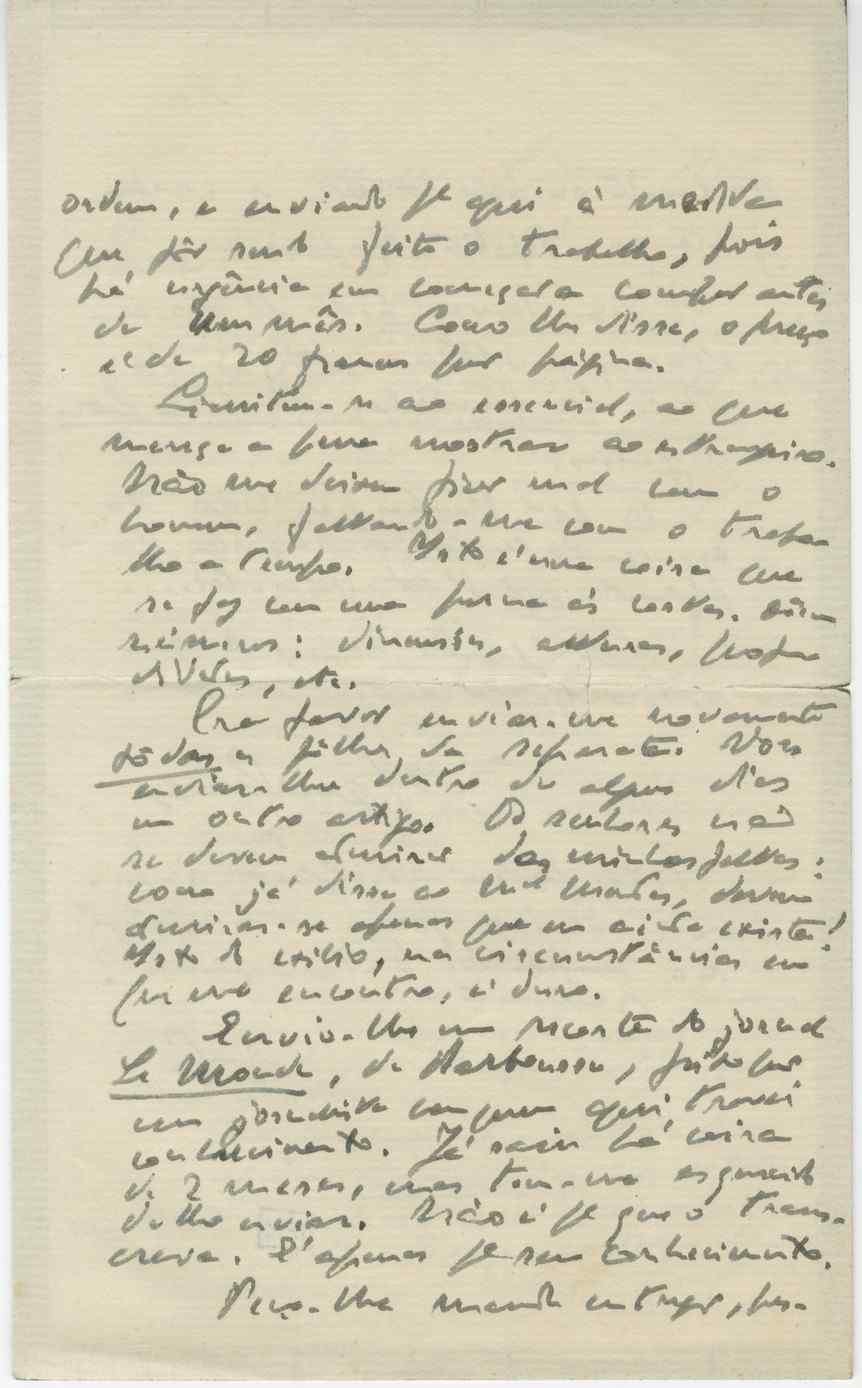 ordem, e enviando pª aqui à medida
que fôr sendo feito o trabalho, pois
há urgência em começar a compôr antes
de um mês. Como lhe disse, o preço
é de 20 francos por página.
Limitem-se ao essencial, ao que
mereça a pena mostrar ao estrangeiro.
Não me deixem ficar mal com o
homem, faltando-me com o traba-
lho a tempo. Isto é uma coisa que
se faz com uma perna às costas.
números: dimensões, alturas, profun
didades, etc.
Era favor enviar-me novamente
tôdas as fôlhas da separata. Vou
enviar-lhe dentro de alguns dias
um outro artigo. Os senhores não
se devem admirar das minhas faltas:
como já disse ao Mel Mendes, devem
admirar-se apenas que eu ainda exista!
Isto do exílio, nas circunstâncias em
que me encontro, é duro.
Envio-lhe um recorte do jornal
Le Monde, de Barbusse, feito por
um jornalista com quem aqui travei
conhecimento. Já saiu há coisa
de 2 meses, mas tem-me esquecido
de lho enviar. Não é pª que o trans-
creva. É apenas pª seu conhecimento.
Peço-lhe mande entregar, por-